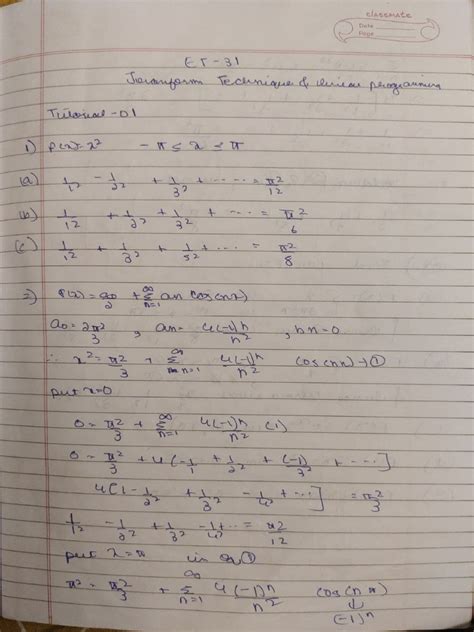 classmate
Date
Page
ET-31
Transform Technique & linear programming
Tutorial-01
1) f(x)=x² -π ≤ x ≤ π
(a) 1/1² - 1/2² + 1/3² + ---- = π²/12
(b) 1/1² + 1/2² + 1/3² + ---- = π²/6
(c) 1/1² + 1/3² + 1/5² + ---- = π²/8
2) f(x) = a0/2 + ∞Σn=1 an cos(nx)
a0 = 2π²/3 , an = 4(-1)^n/n² , bn=0
∴ x² = π²/3 + ∞Σn=1 4(-1)^n/n² cos(nx) → ①
put x=0
0 = π²/3 + ∞Σn=1 4(-1)^n/n² (1)
0 = π²/3 + 4(-1/1 + 1/2² + (-1)/3² + ----]
4[1 - 1/2² + 1/3² - 1/4² + ---] = π²/3
1/1² - 1/2² + 1/3² - 1/4² --- = π²/12
put x=π in ①
π² = π²/3 + ∞Σn=1 4(-1)^n/n² cos(nπ)
↓
(-1)^n